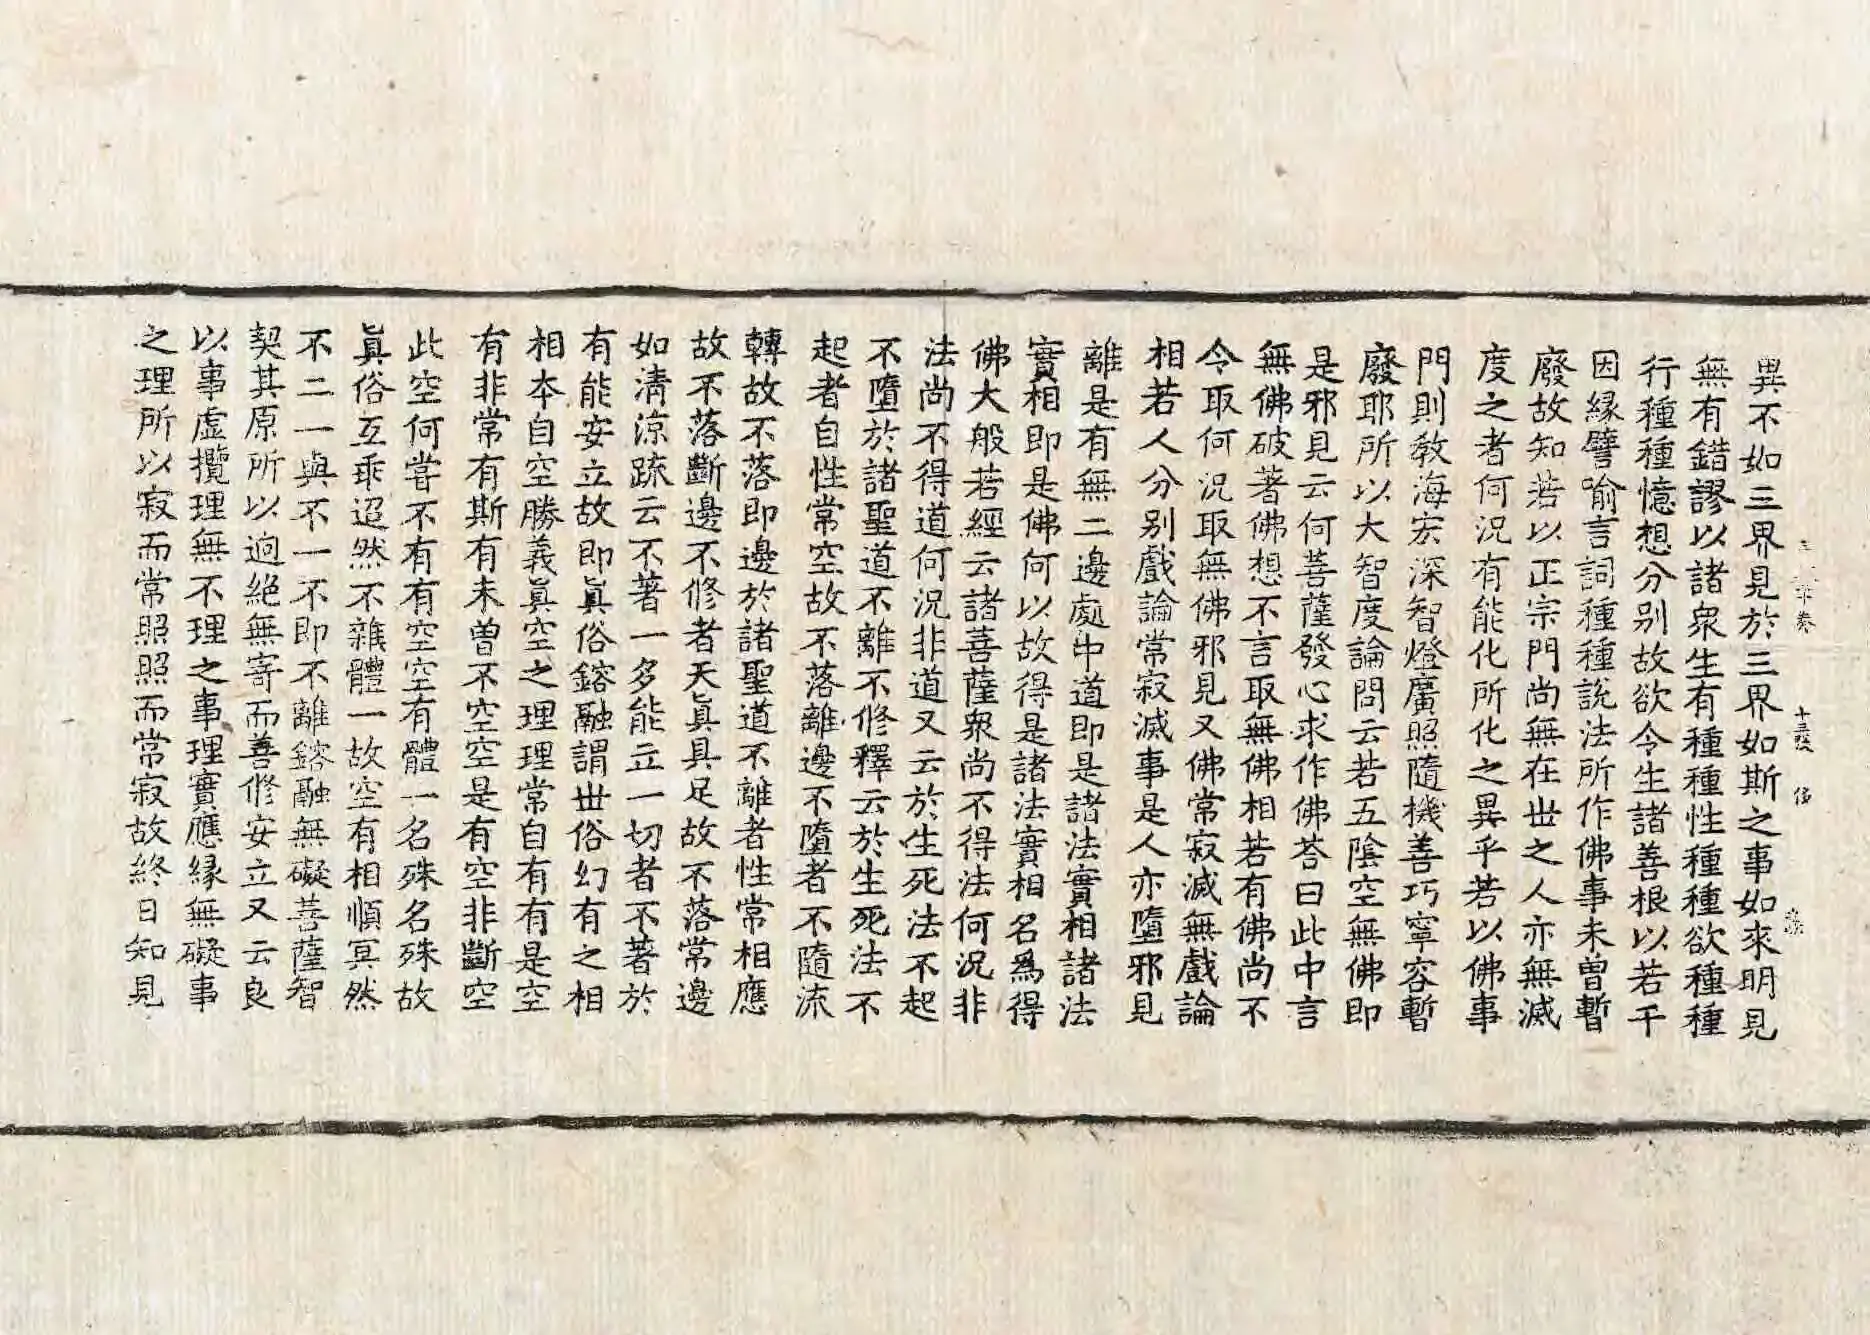 異不如三界見於三界如斯之事如來明見
無有錯謬以諸衆生有種種性種種欲種種
行種種憶想分別故欲令生諸善根以若干
因縁譬喻言詞種種說法所作佛事未曾暫
廢故知若以正宗門尚無在世之人亦無滅
度之者何況有能化所化之異乎若以佛事
門則教海宏深智燈廣照隨機善巧寧容暫
廢耶所以大智度論問云若五陰空無佛即
是邪見云何菩薩發心求作佛荅曰此中言
無佛破著佛想不言取無佛相若有佛尚不
令取何況取無佛邪見又佛常寂滅無戲論
相若人分別戲論常寂滅事是人亦墮邪見
離是有無二邊處中道即是諸法實相諸法
實相即是佛何以故得是諸法實相名爲得
佛大般若經云諸菩薩衆尚不得法何況非
法尚不得道何況非道又云於生死法不起
不墮於諸聖道不離不修釋云於生死法不
起者自性常空故不落離邊不墮者不隨流
轉故不落即邊於諸聖道不離者性常相應
故不落斷邊不修者天眞具足故不落常邊
如清涼䟽云不著一多能立一切者不著於
有能安立故即眞俗鎔融謂世俗幻有之相
相本自空勝義眞空之理理常自有有是空
有非常有斯有未曾不空空是有空非斷空
此空何甞不有有空空有體一名殊名殊故
眞俗互乖迢然不雜體一故空有相順冥然
不二一與不一不即不離鎔融無礙菩薩智
契其原所以逈絕無寄而善修安立又云良
以事虛攬理無不理之事理實應縁無礙事
之理所以寂而常照照而常寂故終日知見